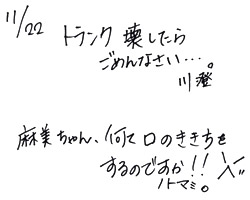 11/22
トランク壊したら
ごめんなさい…。
川澄
麻美ちゃん、何て口のきき方を
するのですか!!
ノトマミ。